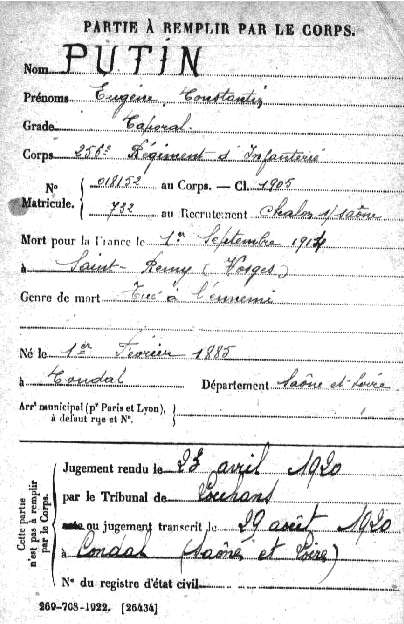 PARTIE À REMPLIR PAR LE CORPS.
Nom PUTIN
Prénoms Eugène Constantin
Grade Caporal
Corps 256e Régiment d'Infanterie
N° 018152 au Corps. — Cl. 1905
Matricule. 732 au Recrutement Chalon s/ Saône
Mort pour la France le 1er Septembre 1914
à Saint-Remy (Vosges)
Genre de mort Tué à l'ennemi
Né le 1er Février 1885
à Condal Département Saône et Loire
Arrt municipal (pr Paris et Lyon),
à défaut rue et N°.
Cette partie
n'est pas à remplir
par le Corps.
Jugement rendu le 23 avril 1920
par le Tribunal de Louhans
acte ou jugement transcrit le 29 août 1920
à Condal (Saône et Loire)
N° du registre d'état civil
269-708-1922. [26434]